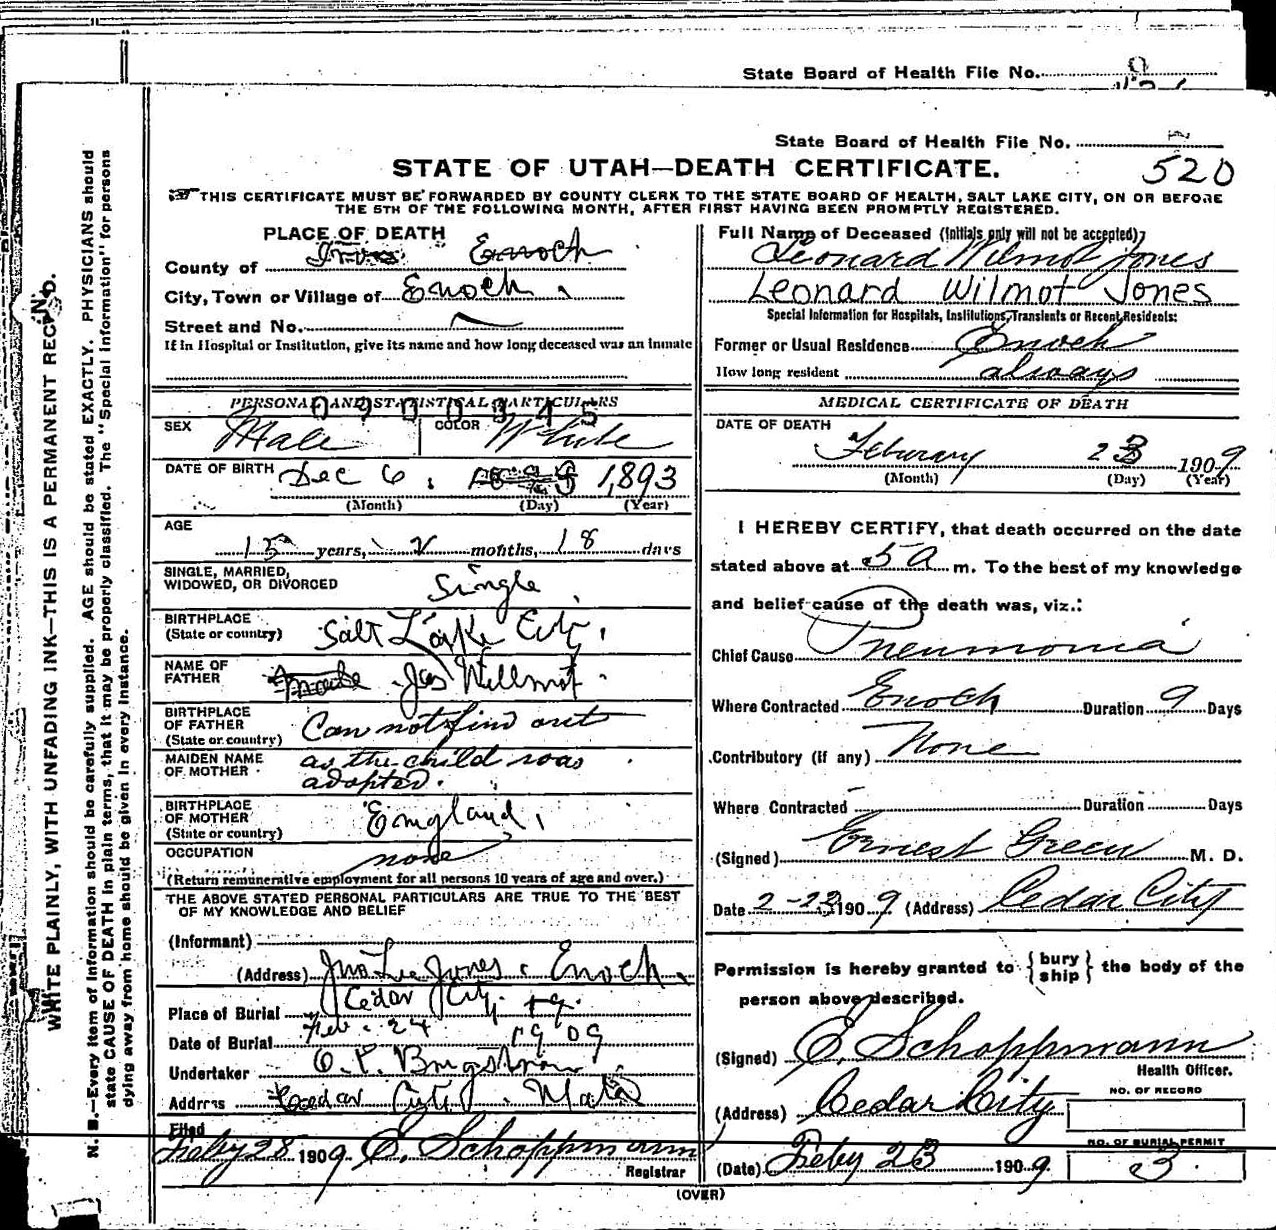 State Board of Health File No.
State Board of Health File No.
520
STATE OF UTAH—DEATH CERTIFICATE.
THIS CERTIFICATE MUST BE FORWARDED BY COUNTY CLERK TO THE STATE BOARD OF HEALTH, SALT LAKE CITY, ON OR BEFORE
THE 5TH OF THE FOLLOWING MONTH, AFTER FIRST HAVING BEEN PROMPTLY REGISTERED.
WRITE PLAINLY, WITH UNFADING INK—THIS IS A PERMANENT RECORD.
N. B.—Every item of information should be carefully supplied. AGE should be stated EXACTLY. PHYSICIANS should
state CAUSE OF DEATH in plain terms, that it may be properly classified. The "Special Information" for persons
dying away from home should be given in every instance.
PLACE OF DEATH
County of Enoch
City, Town or Village of Enoch
Street and No.
If in Hospital or Institution, give its name and how long deceased was an inmate
PERSONAL AND STATISTICAL PARTICULARS
0900345
SEX Male COLOR White
DATE OF BIRTH Dec 6, 1893
(Month) (Day) (Year)
AGE
15 years, 2 months, 18 days
SINGLE, MARRIED,
WIDOWED, OR DIVORCED Single
BIRTHPLACE
(State or country) Salt Lake City,
NAME OF
FATHER Jas Willmot
BIRTHPLACE
OF FATHER
(State or country) Can not find out
MAIDEN NAME
OF MOTHER as the child was
adopted.
BIRTHPLACE
OF MOTHER
(State or country) England,
OCCUPATION none
(Return remunerative employment for all persons 10 years of age and over.)
THE ABOVE STATED PERSONAL PARTICULARS ARE TRUE TO THE BEST
OF MY KNOWLEDGE AND BELIEF
(Informant)
(Address) Jno Lee Jones, Enoch
Place of Burial Cedar City
Date of Burial Feb. 24 1909
Undertaker
Address Cedar City,
Filed
Feby 28 1909 E. Schoppmann
Registrar
Full Name of Deceased (Initials only will not be accepted)
Leonard Wilmot Jones
Leonard Wilmot Jones
Special Information for Hospitals, Institutions, Transients or Recent Residents:
Former or Usual Residence Enoch
How long resident always
MEDICAL CERTIFICATE OF DEATH
DATE OF DEATH
Feburary 23 1909
(Month) (Day) (Year)
I HEREBY CERTIFY, that death occurred on the date
stated above at 5 a m. To the best of my knowledge
and belief cause of the death was, viz.:
Chief Cause Pneumonia
Where Contracted Enoch Duration 9 Days
Contributory (if any) None
Where Contracted Duration Days
(Signed) Ernest Green M. D.
Date 2-23 1909 (Address) Cedar City
Permission is hereby granted to {bury ship} the body of the
person above described.
(Signed) E. Schoppmann
Health Officer.
(Address) Cedar City
NO. OF RECORD
NO. OF BURIAL PERMIT
(Date) Feby 23 1909 3.
(OVER)